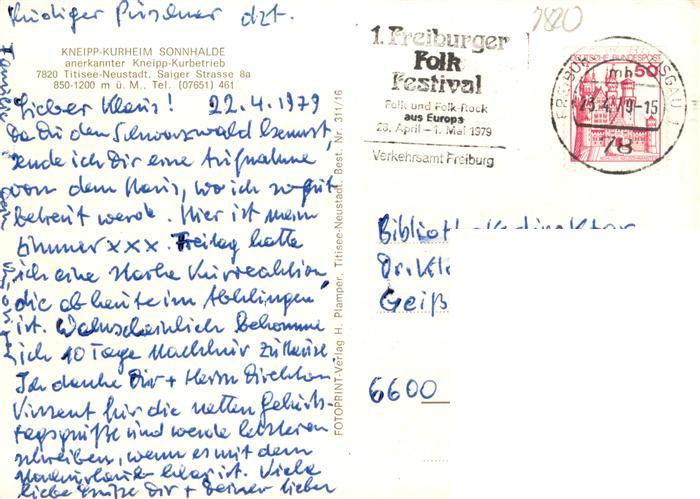 Rüdiger Püschner dzt.
KNEIPP-KURHEIM SONNHALDE
anerkannter Kneipp-Kurbetrieb
7820 Titisee-Neustadt, Saiger Strasse 8a
850-1200 m ü. M., Tel. (07651) 461
Lieber Klaus! 22.4.1979
Da Du den Schwarzwald kennst,
sende ich Dir eine Aufnahme
von dem Haus, wo ich so gut
betreut werde. Hier ist mein
Zimmer xxx. Freitag hatte
ich eine starke Kurreaktion,
die ab heute im Abklingen
ist. Wahrscheinlich bekomme
ich 10 Tage Nachkur zuhause.
Ich danke Dir + Herrn Direktor
Vinzent für die netten Geburts-
tagsgrüße und werde letzteren
schreiben, wenn es mit dem
klar ist. Viele
liebe Grüße Dir + Deiner lieben
Familie Dein
FOTOPRINT-Verlag H. Plamper, Titisee-Neustadt. Best. Nr. 311/16
7820
1. Freiburger
Folk
Festival
Folk und Folk-Rock
aus Europa
28. April - 1. Mai 1979
Verkehrsamt Freiburg
DEUTSCHE BUNDESPOST
50
FREIBURG IM BREISGAU 1
mh
23.4.79-15
78
Bibliotheksdirektor
Dr. Kl
Geiß
6600